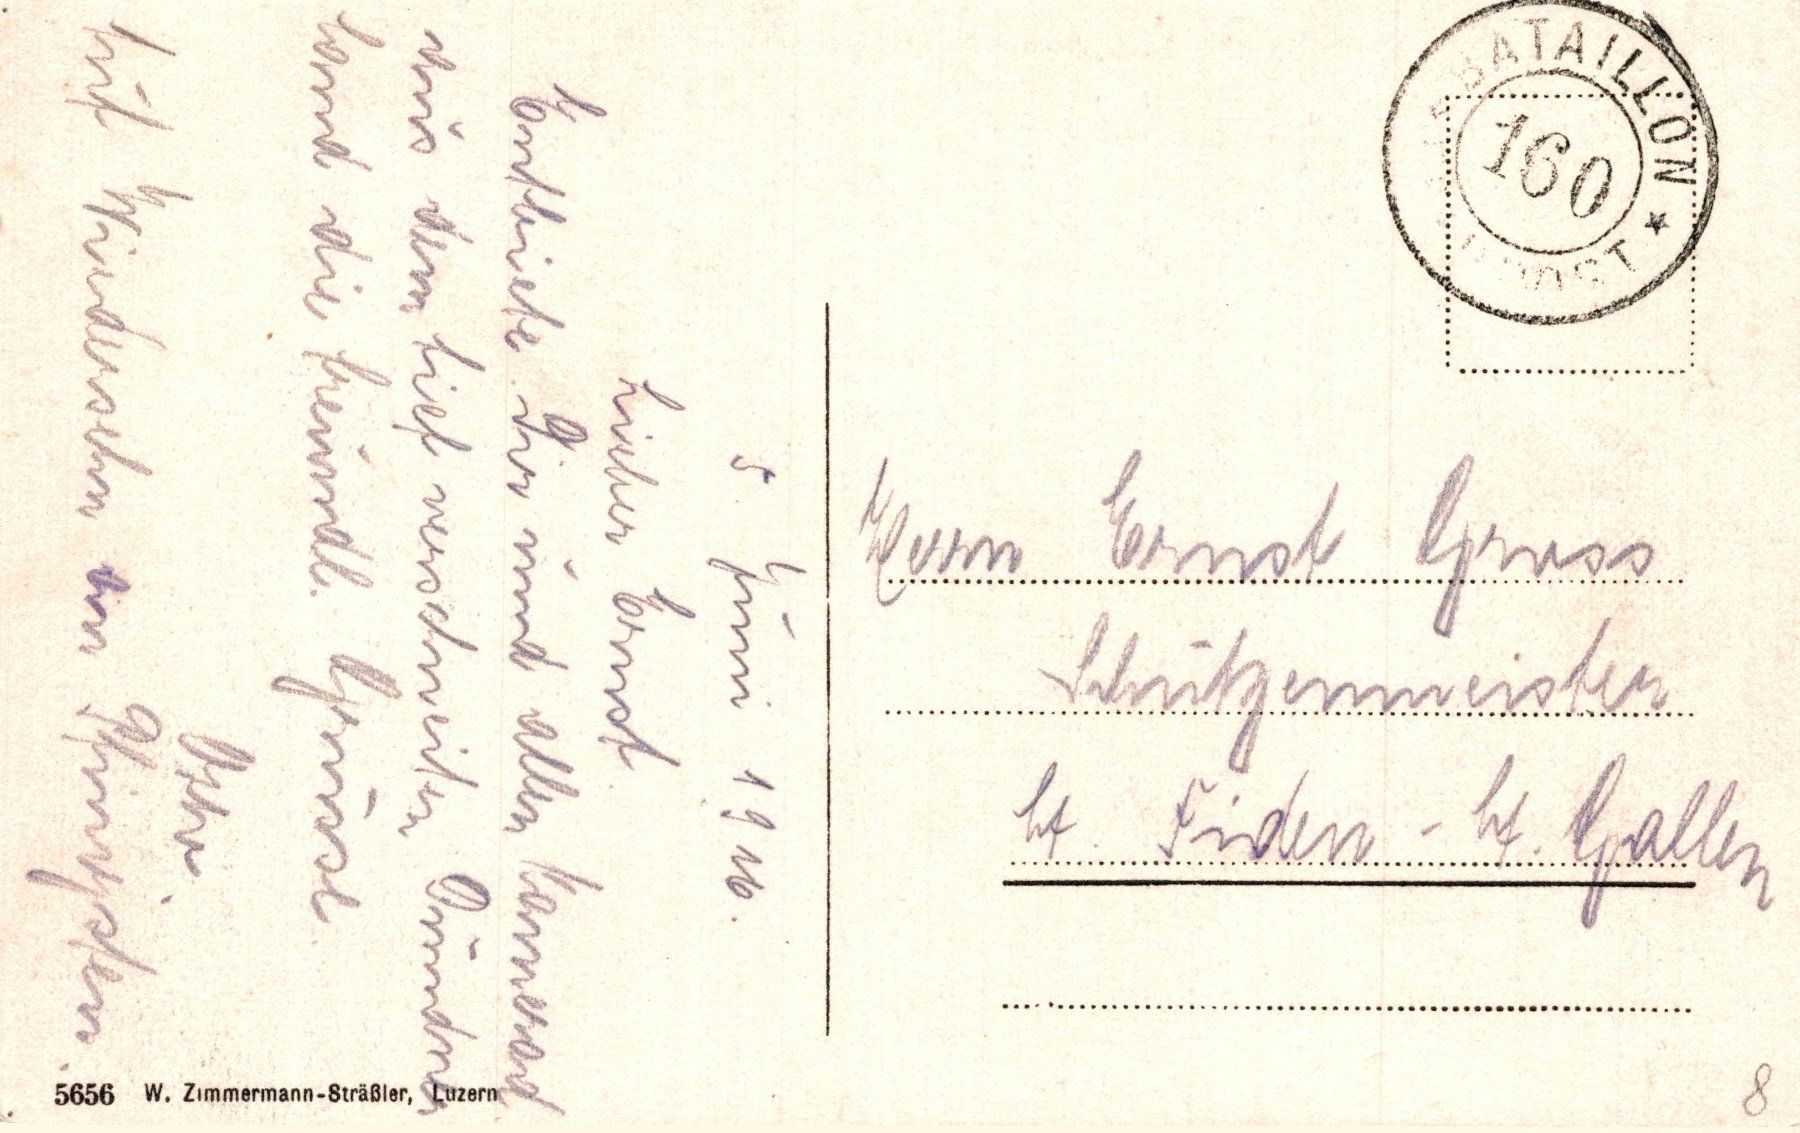 BATAILLON
160
POST
Herrn Ernst Gross
Schützenmeister
St. Fiden - St. Gallen
5 Juni 1916.
Lieber Ernst.
Entbiete Dir und allen Kamerad
aus dem tief verschneiten Bündner
land die freundl. Grüsse
Auf Wiedersehn an Pfingsten.
5656 W. Zimmermann-Sträßler, Luzern
8